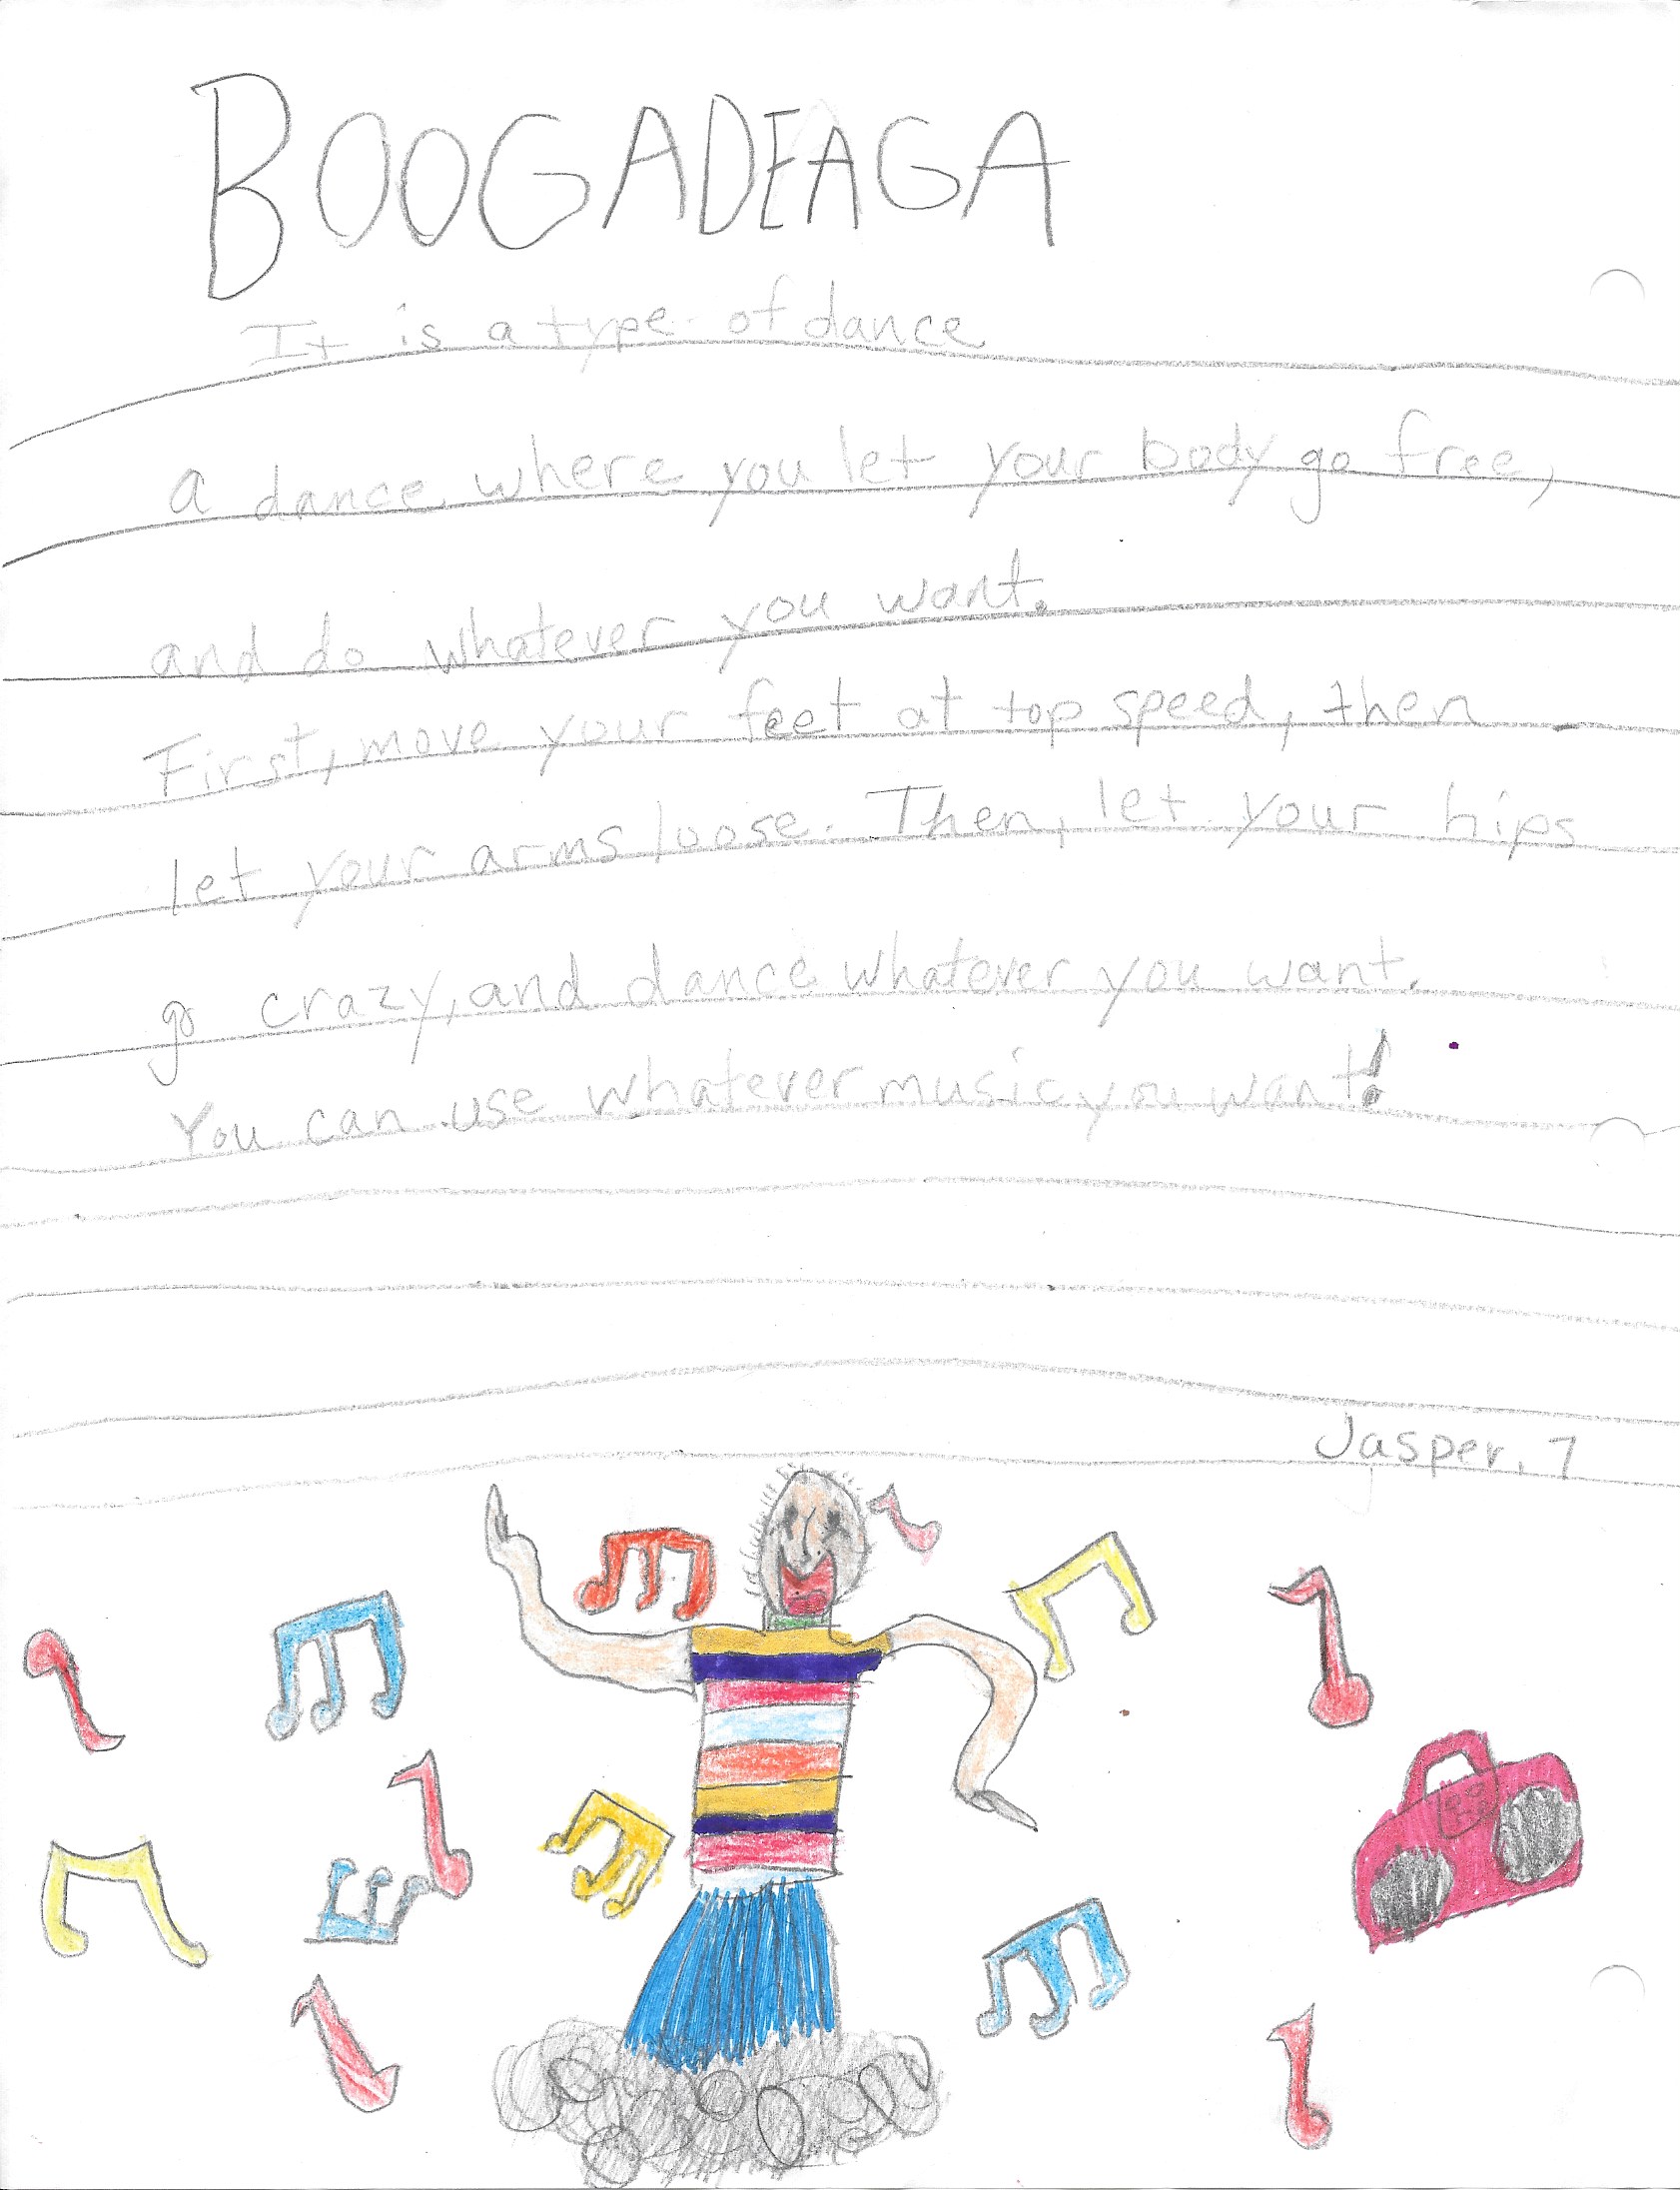 BOOGADEAGA
It is a type of dance
a dance where you let your body go free,
and do whatever you want.
First, move your feet at top speed, then
let your arms loose. Then, let your hips
go crazy, and dance whatever you want.
You can use whatever music you want!
Jasper, 7